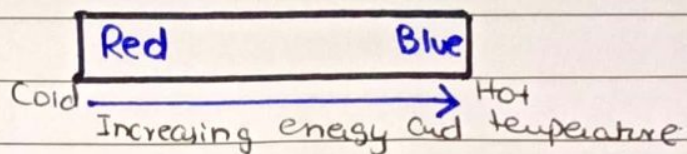 Red Blue
Cold Hot
Increasing energy and temperature